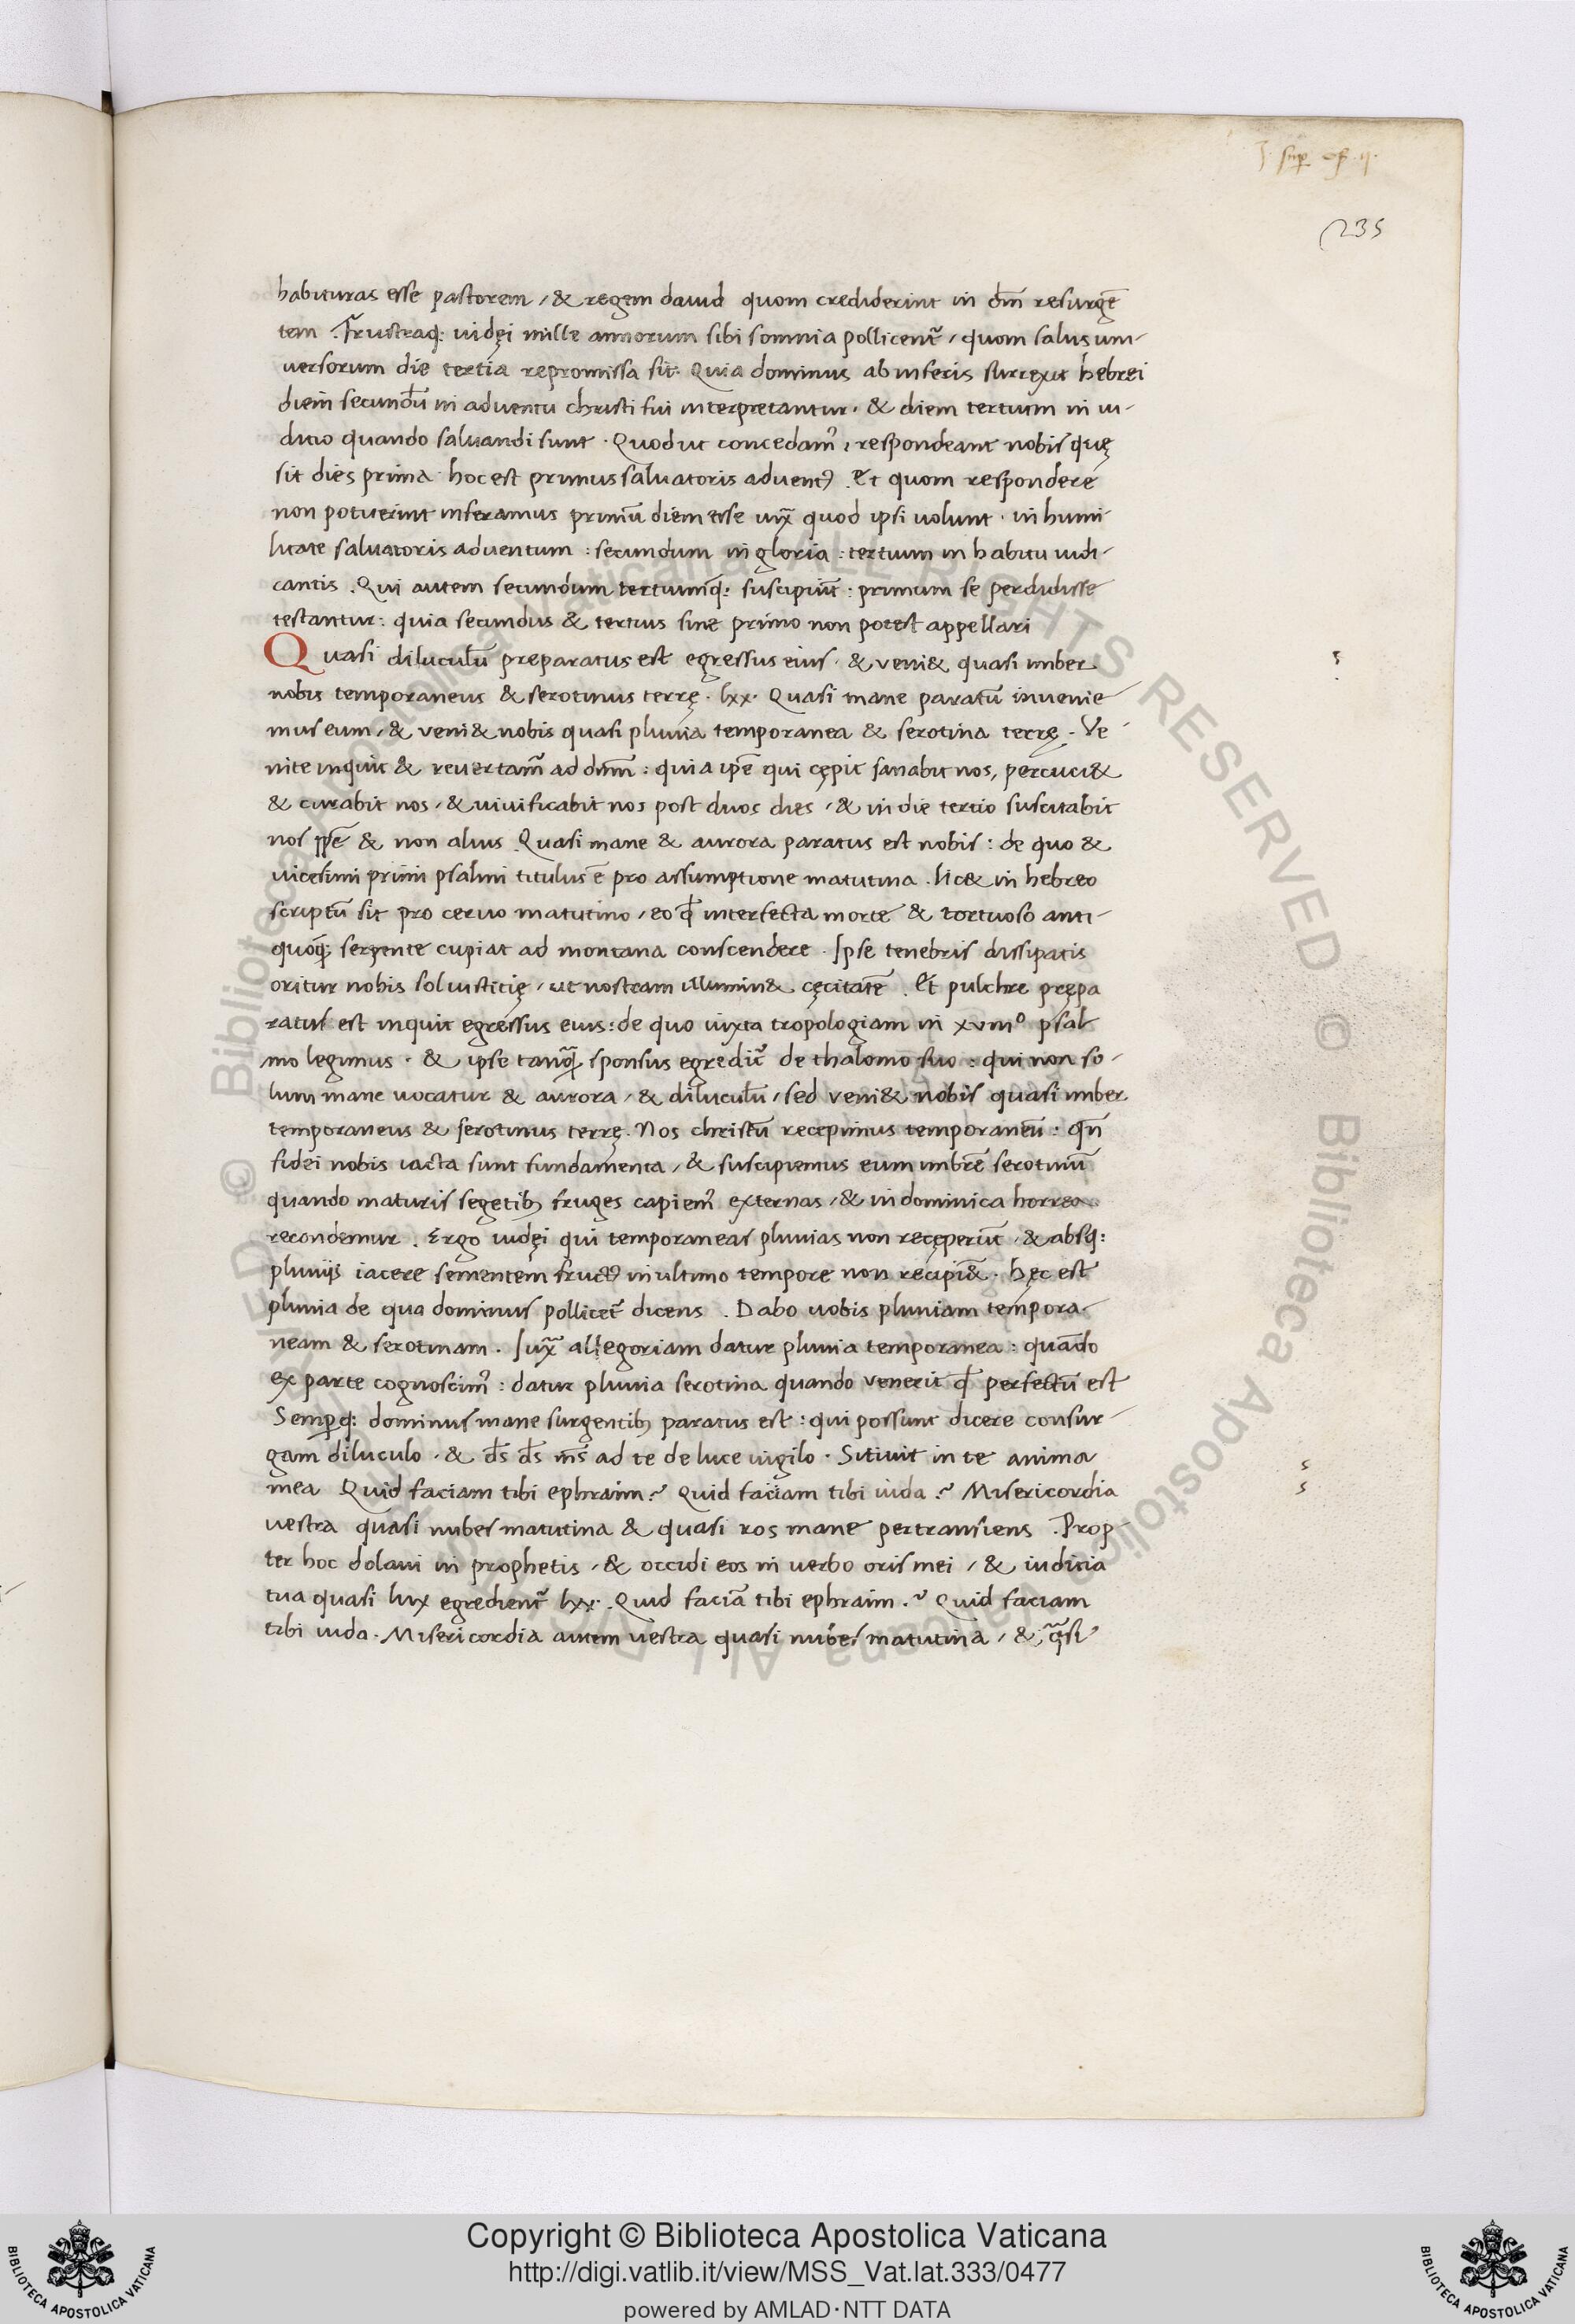 J. sup. of. ij.
235
habituras esse pastorem / & regem dauid quom crediderint in dm̄ resurgē
tem . Frustraq: iudęi mille annorum sibi somnia pollicent᷑ / quom salus uni-
uersorum die tertia repromissa sit · Quia dominus ab inferis surrexit hebrei
diem secundū in aduentu christi sui interpretantur · & diem tertium in iu-
dicio quando saluandi sunt · Quod ut concedam᷒ / respondeant nobis quę
sit dies prima · hoc est primus saluatoris aduent᷒ . Et quom respondere
non potuerint inferamus primū diem esse iux̄ quod ipsi uolunt · in humi-
litate saluatoris aduentum : secundum in gloria : tertium in habitu iudi-
cantis . Qui autem secundum tertiumq: suscipiūt : primum se perdidisse
testantur : quia secundus & tertius sine primo non potest appellari
Quasi diluculū preparatus est egressus eius · & veni& quasi imber
nobis temporaneus & serotinus terrę · lxx · Quasi mane paratū inuenie-
mus eum / & veni& nobis quasi pluuia temporanea & serotina terrę · Ve-
nite inquit & reuertam᷒ ad dnm̄ : quia ipē qui cępit sanabit nos, percuci&
& curabit nos / & uiuificabit nos post duos dies / & in die tertio suscitabit
nos ipē & non alius . Quasi mane & aurora paratus est nobis : de quo &
uicesimi primi psalmi titulus ē pro assumptione matutina . lic& in hebreo
scriptū sit pro ceruo matutino / eo qđ interfecta morte & tortuoso anti-
quoq: serpente cupiat ad montana conscendere · Ipse tenebris dissipatis
oritur nobis sol iusticię / ut nostram illumin& cęcitatē . Et pulchre prępa
ratus est inquit egressus eius : de quo iuxta tropologiam in xviiiº psal
mo legimus · & ipse tanq̄ sponsus egredit᷑ de thalomo suo : qui non so-
lum mane uocatur & aurora / & diluculū / sed veni& nobis quasi imber
temporaneus & serotinus terrę . Nos christū recepimus temporaneū : qn̄
fidei nobis iacta sunt fundamenta / & suscipiemus eum imbrē serotinū
quando maturis segetib; fruges capiem᷒ externas / & in dominica horrea
recondemur . Ergo iudęi qui temporaneas pluuias non recęperūt · & absq:
pluuijs iacere sementem fruct᷒ in ultimo tempore non recipi&̄ . hęc est
pluuia de qua dominus pollicet᷑ dicens . Dabo uobis pluuiam tempora-
neam & serotinam . Iux̄ allegoriam datur pluuia temporanea : quādo
ex parte cognoscim᷒ : datur pluuia serotina quando venerit qđ perfectū est
Semp̱q: dominus mane surgentib; paratus est : qui possunt dicere consur-
gam diluculo · & ds̄ ds̄ ms̄ ad te de luce uigilo · Sitiuit in te anima
mea Quid faciam tibi ephraim ? Quid faciam tibi iuda ? Misericordia
uestra quasi nubes matutina & quasi ros mane pertransiens . Prop-
ter hoc dolaui in prophetis / & occidi eos in uerbo oris mei / & iudicia
tua quasi lux egredient᷑ lxx · Quid faciā tibi ephraim ? Quid faciam
tibi iuda · Misericordia autem uestra quasi nubes matutina / & q̄si
© Biblioteca Apostolica Vaticana ALL RIGHTS RESERVED
Copyright © Biblioteca Apostolica Vaticana
http://digi.vatlib.it/view/MSS_Vat.lat.333/0477
powered by AMLAD·NTT DATA
BIBLIOTECA APOSTOLICA VATICANA
BIBLIOTECA APOSTOLICA VATICANA